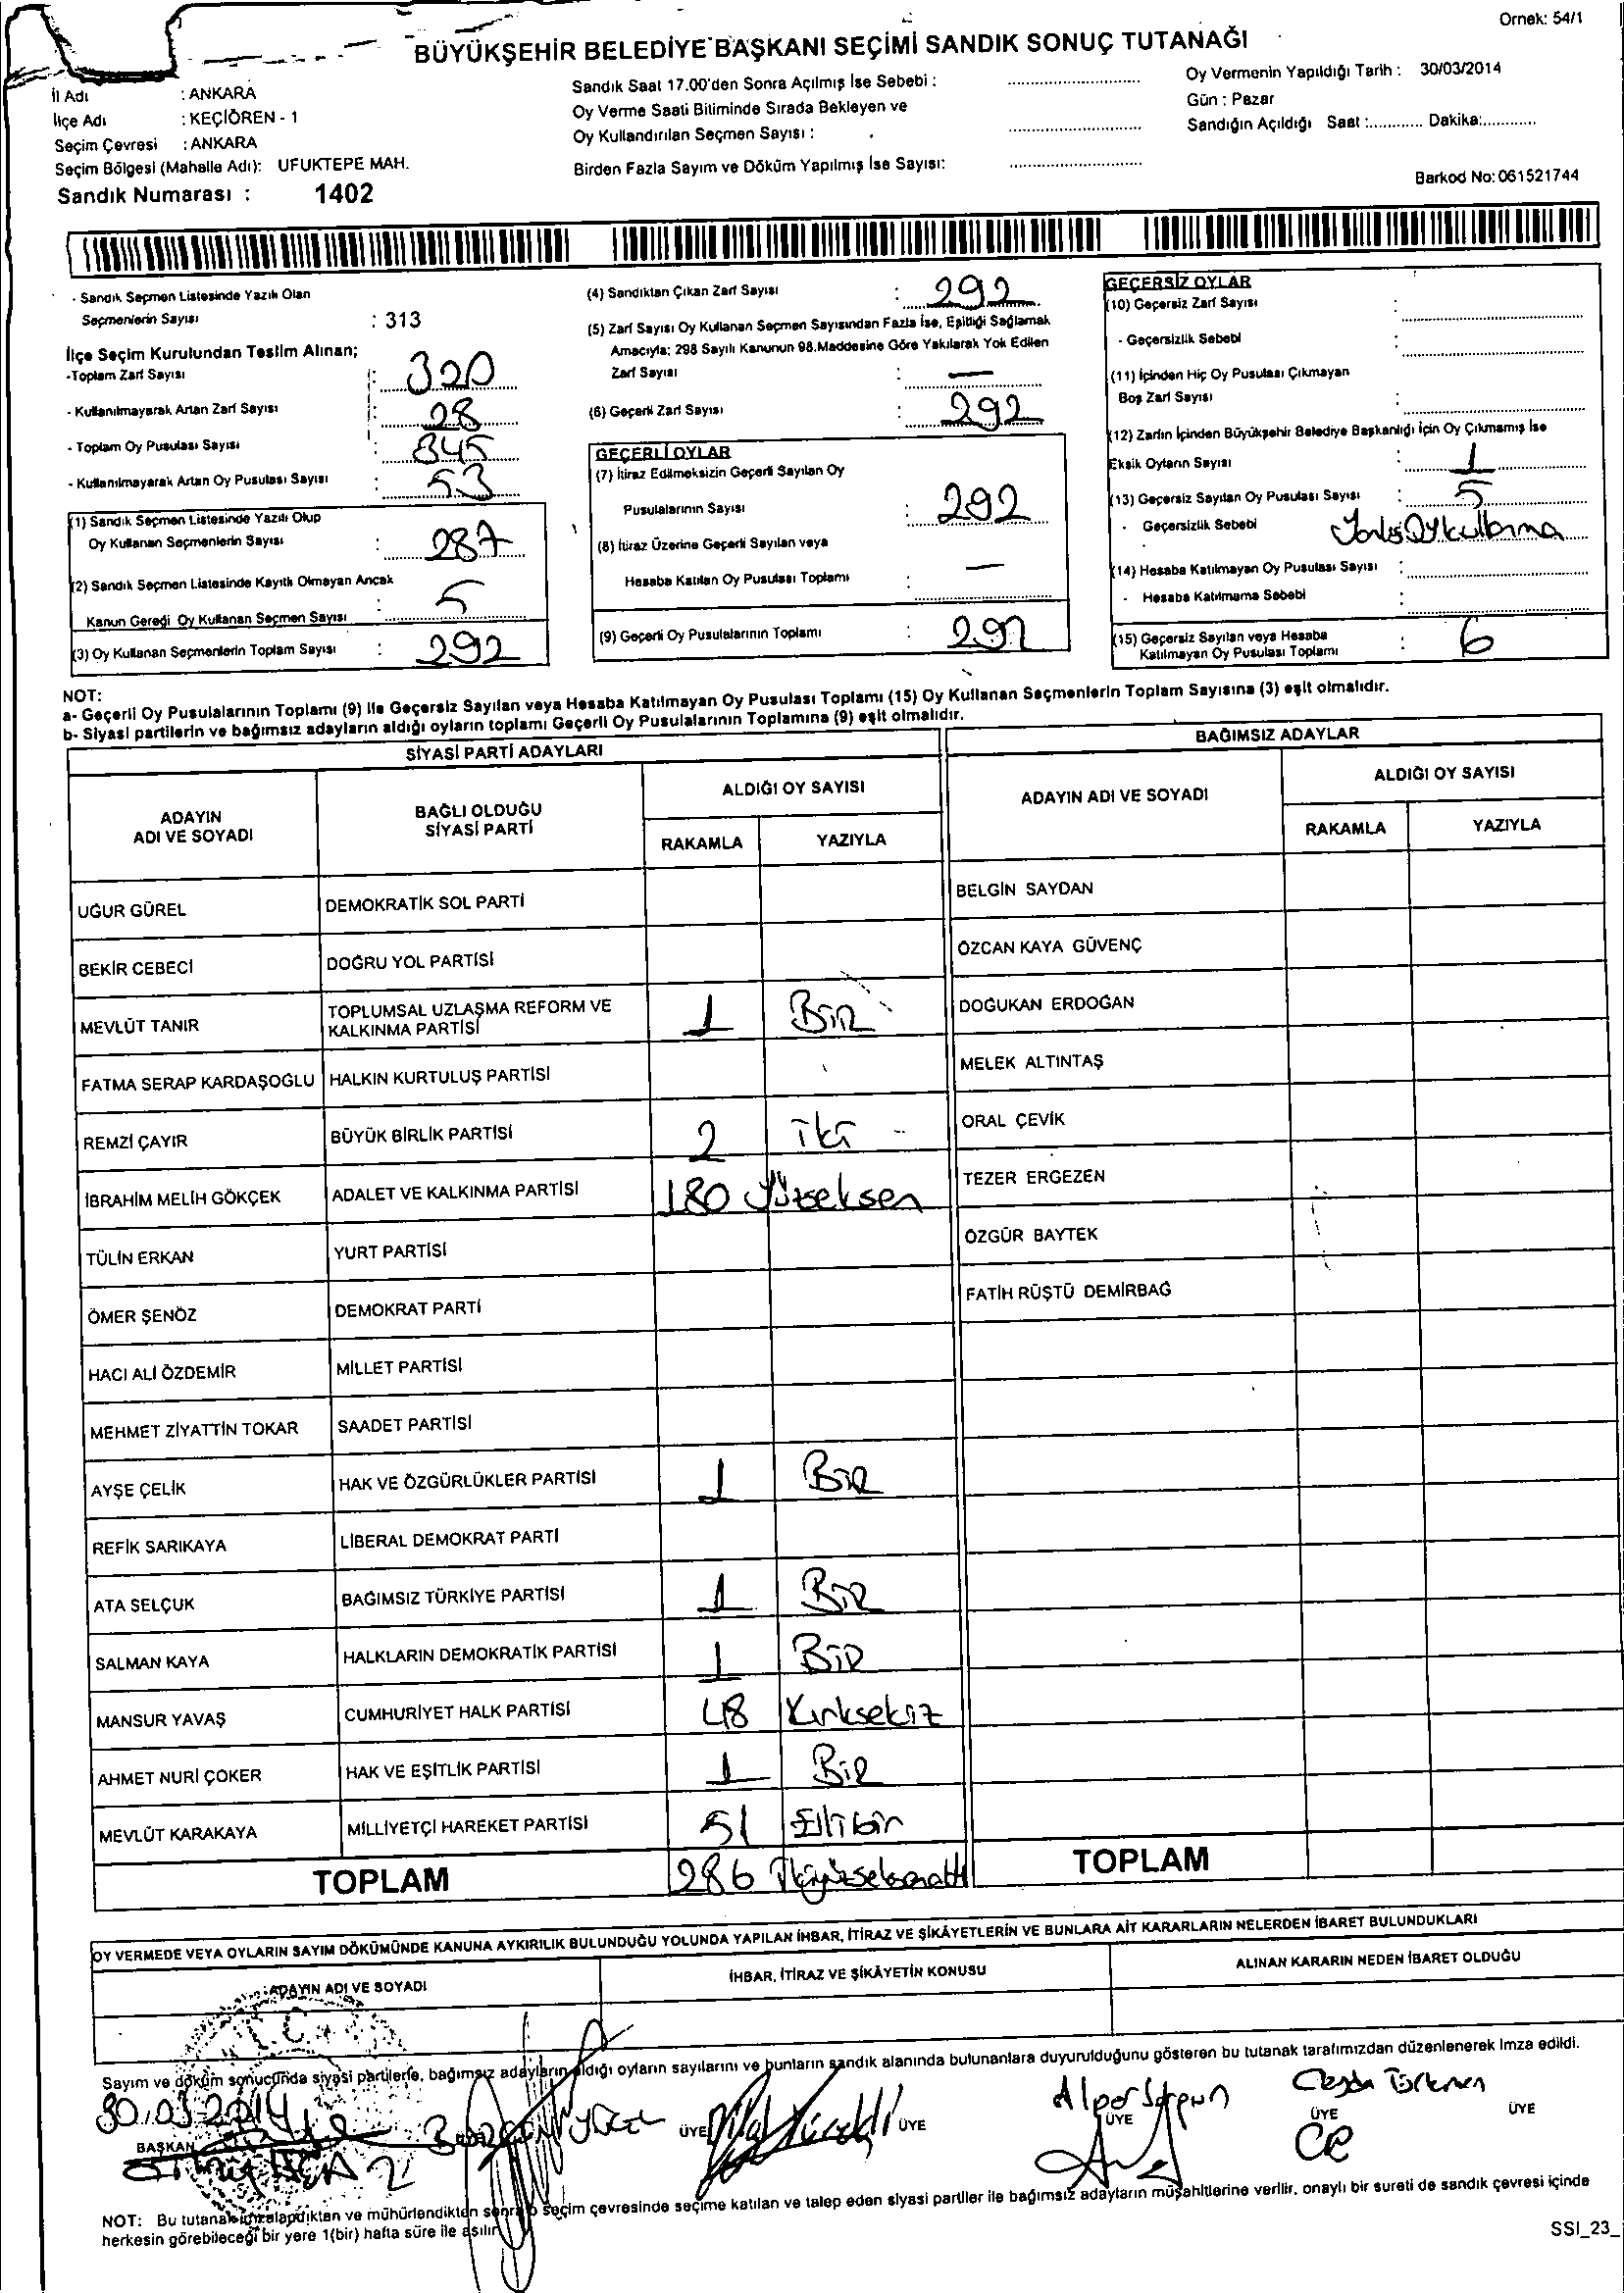 Ornek: 54/1
BÜYÜKŞEHİR BELEDİYE BAŞKANI SEÇİMİ SANDIK SONUÇ TUTANAĞI
İl Adı : ANKARA
İlçe Adı : KEÇİÖREN - 1
Seçim Çevresi : ANKARA
Seçim Bölgesi (Mahalle Adı): UFUKTEPE MAH.
Sandık Numarası : 1402
Sandık Saat 17.00'den Sonra Açılmış İse Sebebi :
Oy Verme Saati Bitiminde Sırada Bekleyen ve
Oy Kullandırılan Seçmen Sayısı :
Birden Fazla Sayım ve Döküm Yapılmış İse Sayısı:
Oy Vermenin Yapıldığı Tarih : 30/03/2014
Gün : Pazar
Sandığın Açıldığı Saat :............ Dakika:............
Barkod No: 061521744
- Sandık Seçmen Listesinde Yazılı Olan
Seçmenlerin Sayısı : 313
İlçe Seçim Kurulundan Teslim Alınan;
-Toplam Zarf Sayısı : 320
- Kullanılmayarak Artan Zarf Sayısı : 28
- Toplam Oy Pusulası Sayısı : 345
- Kullanılmayarak Artan Oy Pusulası Sayısı : 53
(1) Sandık Seçmen Listesinde Yazılı Olup
Oy Kullanan Seçmenlerin Sayısı : 287
(2) Sandık Seçmen Listesinde Kayıtlı Olmayan Ancak
Kanun Gereği Oy Kullanan Seçmen Sayısı : 5
(3) Oy Kullanan Seçmenlerin Toplam Sayısı : 292
(4) Sandıktan Çıkan Zarf Sayısı : 292
(5) Zarf Sayısı Oy Kullanan Seçmen Sayısından Fazla İse, Eşitliği Sağlamak
Amacıyla; 298 Sayılı Kanunun 98.Maddesine Göre Yakılarak Yok Edilen
Zarf Sayısı : —
(6) Geçerli Zarf Sayısı : 292
GEÇERLİ OYLAR
(7) İtiraz Edilmeksizin Geçerli Sayılan Oy
Pusulalarının Sayısı : 292
(8) İtiraz Üzerine Geçerli Sayılan veya
Hesaba Katılan Oy Pusulası Toplamı : —
(9) Geçerli Oy Pusulalarının Toplamı : 292
GEÇERSİZ OYLAR
(10) Geçersiz Zarf Sayısı :
- Geçersizlik Sebebi :
(11) İçinden Hiç Oy Pusulası Çıkmayan
Boş Zarf Sayısı :
(12) Zarfın İçinden Büyükşehir Belediye Başkanlığı İçin Oy Çıkmamış İse
Eksik Oyların Sayısı : 1
(13) Geçersiz Sayılan Oy Pusulası Sayısı : 5
- Geçersizlik Sebebi Yanlış Oy kullanma
(14) Hesaba Katılmayan Oy Pusulası Sayısı :
- Hesaba Katılmama Sebebi :
(15) Geçersiz Sayılan veya Hesaba
Katılmayan Oy Pusulası Toplamı : 6
NOT:
a- Geçerli Oy Pusulalarının Toplamı (9) ile Geçersiz Sayılan veya Hesaba Katılmayan Oy Pusulası Toplamı (15) Oy Kullanan Seçmenlerin Toplam Sayısına (3) eşit olmalıdır.
b- Siyasi partilerin ve bağımsız adayların aldığı oyların toplamı Geçerli Oy Pusulalarının Toplamına (9) eşit olmalıdır.
SİYASİ PARTİ ADAYLARI
ADAYIN ADI VE SOYADI
BAĞLI OLDUĞU SİYASİ PARTİ
ALDIĞI OY SAYISI
RAKAMLA YAZIYLA
UĞUR GÜREL DEMOKRATİK SOL PARTİ
BEKİR CEBECİ DOĞRU YOL PARTİSİ
MEVLÜT TANIR TOPLUMSAL UZLAŞMA REFORM VE KALKINMA PARTİSİ 1 BİR
FATMA SERAP KARDAŞOĞLU HALKIN KURTULUŞ PARTİSİ
REMZİ ÇAYIR BÜYÜK BİRLİK PARTİSİ 2 iki
İBRAHİM MELİH GÖKÇEK ADALET VE KALKINMA PARTİSİ 180 Yüzseksen
TÜLİN ERKAN YURT PARTİSİ
ÖMER ŞENÖZ DEMOKRAT PARTİ
HACI ALİ ÖZDEMİR MİLLET PARTİSİ
MEHMET ZİYATTİN TOKAR SAADET PARTİSİ
AYŞE ÇELİK HAK VE ÖZGÜRLÜKLER PARTİSİ 1 BİR
REFİK SARIKAYA LİBERAL DEMOKRAT PARTİ
ATA SELÇUK BAĞIMSIZ TÜRKİYE PARTİSİ 1 BİR
SALMAN KAYA HALKLARIN DEMOKRATİK PARTİSİ 1 BİR
MANSUR YAVAŞ CUMHURİYET HALK PARTİSİ 48 Kırksekiz
AHMET NURİ ÇOKER HAK VE EŞİTLİK PARTİSİ 1 BİR
MEVLÜT KARAKAYA MİLLİYETÇİ HAREKET PARTİSİ 51 Ellibir
TOPLAM 286 İkiyüzseksenaltı
BAĞIMSIZ ADAYLAR
ADAYIN ADI VE SOYADI
ALDIĞI OY SAYISI
RAKAMLA YAZIYLA
BELGİN SAYDAN
ÖZCAN KAYA GÜVENÇ
DOĞUKAN ERDOĞAN
MELEK ALTINTAŞ
ORAL ÇEVİK
TEZER ERGEZEN
ÖZGÜR BAYTEK
FATİH RÜŞTÜ DEMİRBAĞ
TOPLAM
OY VERMEDE VEYA OYLARIN SAYIM DÖKÜMÜNDE KANUNA AYKIRILIK BULUNDUĞU YOLUNDA YAPILAN İHBAR, İTİRAZ VE ŞİKÂYETLERİN VE BUNLARA AİT KARARLARIN NELERDEN İBARET BULUNDUKLARI
ADAYIN ADI VE SOYADI İHBAR, İTİRAZ VE ŞİKÂYETİN KONUSU ALINAN KARARIN NEDEN İBARET OLDUĞU
Sayım ve döküm sonucunda siyasi partilerle, bağımsız adayların aldığı oyların sayılarını ve bunların sandık alanında bulunanlara duyurulduğunu gösteren bu tutanak tarafımızdan düzenlenerek imza edildi.
30.03.2014
BAŞKAN ÜYE ÜYE ÜYE ÜYE ÜYE
NOT: Bu tutanak imzalandıktan ve mühürlendikten sonra o seçim çevresinde seçime katılan ve talep eden siyasi partiler ile bağımsız adayların müşahitlerine verilir, onaylı bir sureti de sandık çevresi içinde
herkesin görebileceği bir yere 1(bir) hafta süre ile asılır.
SSI_23_